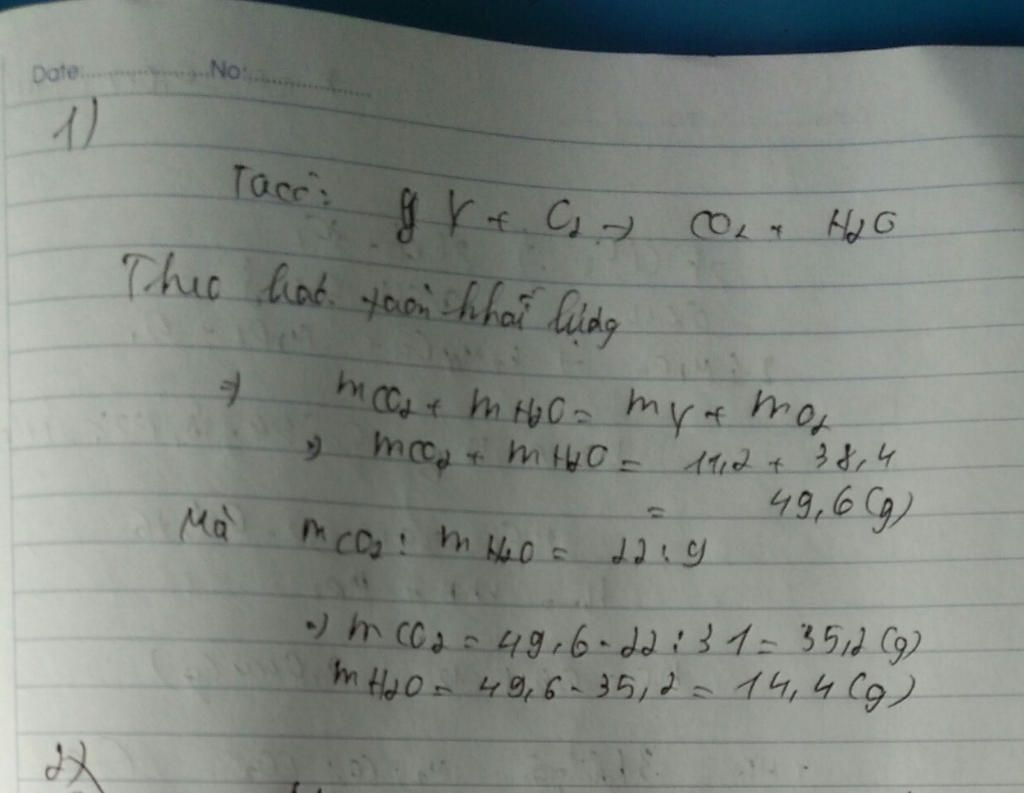 Date: No:
1)
Ta có: Y + O2 → CO2 + H2O
Theo bảo toàn khối lượng
⇒ mCO2 + mH2O = mY + mO2
⇒ mCO2 + mH2O = 11,2 + 38,4
= 49,6 (g)
Mà mCO2 : mH2O = 22 : 9
⇒ mCO2 = 49,6 . 22 : 31 = 35,2 (g)
mH2O = 49,6 - 35,2 = 14,4 (g)
2)